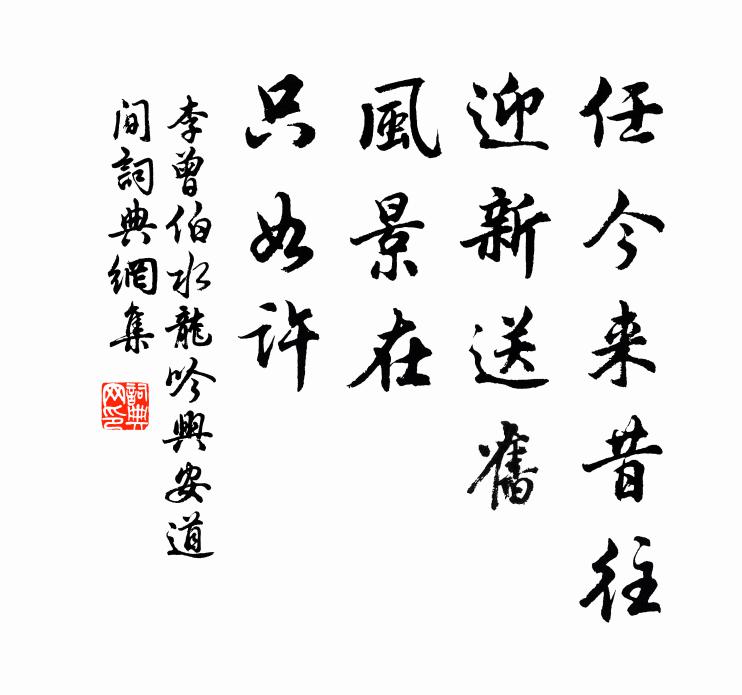 任今来昔往
迎新送舊
風景在
只如許
李曾伯水龍吟興安道
間詞典網集
詞典
网印